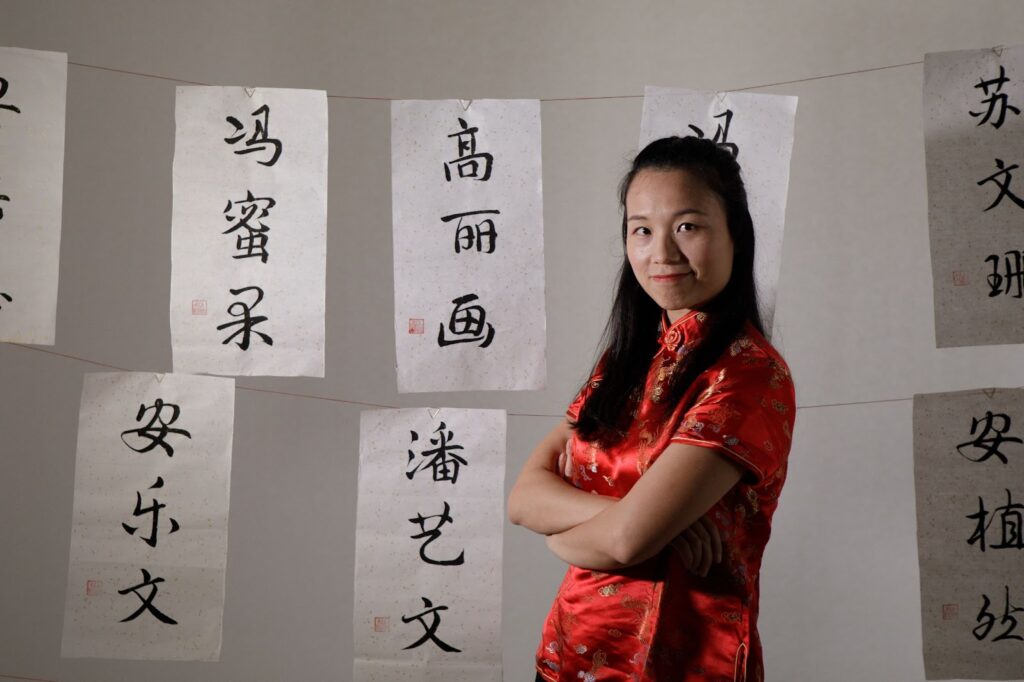 冯蜜
高丽画
冯
苏文珊
安乐文
潘艺文
安植然